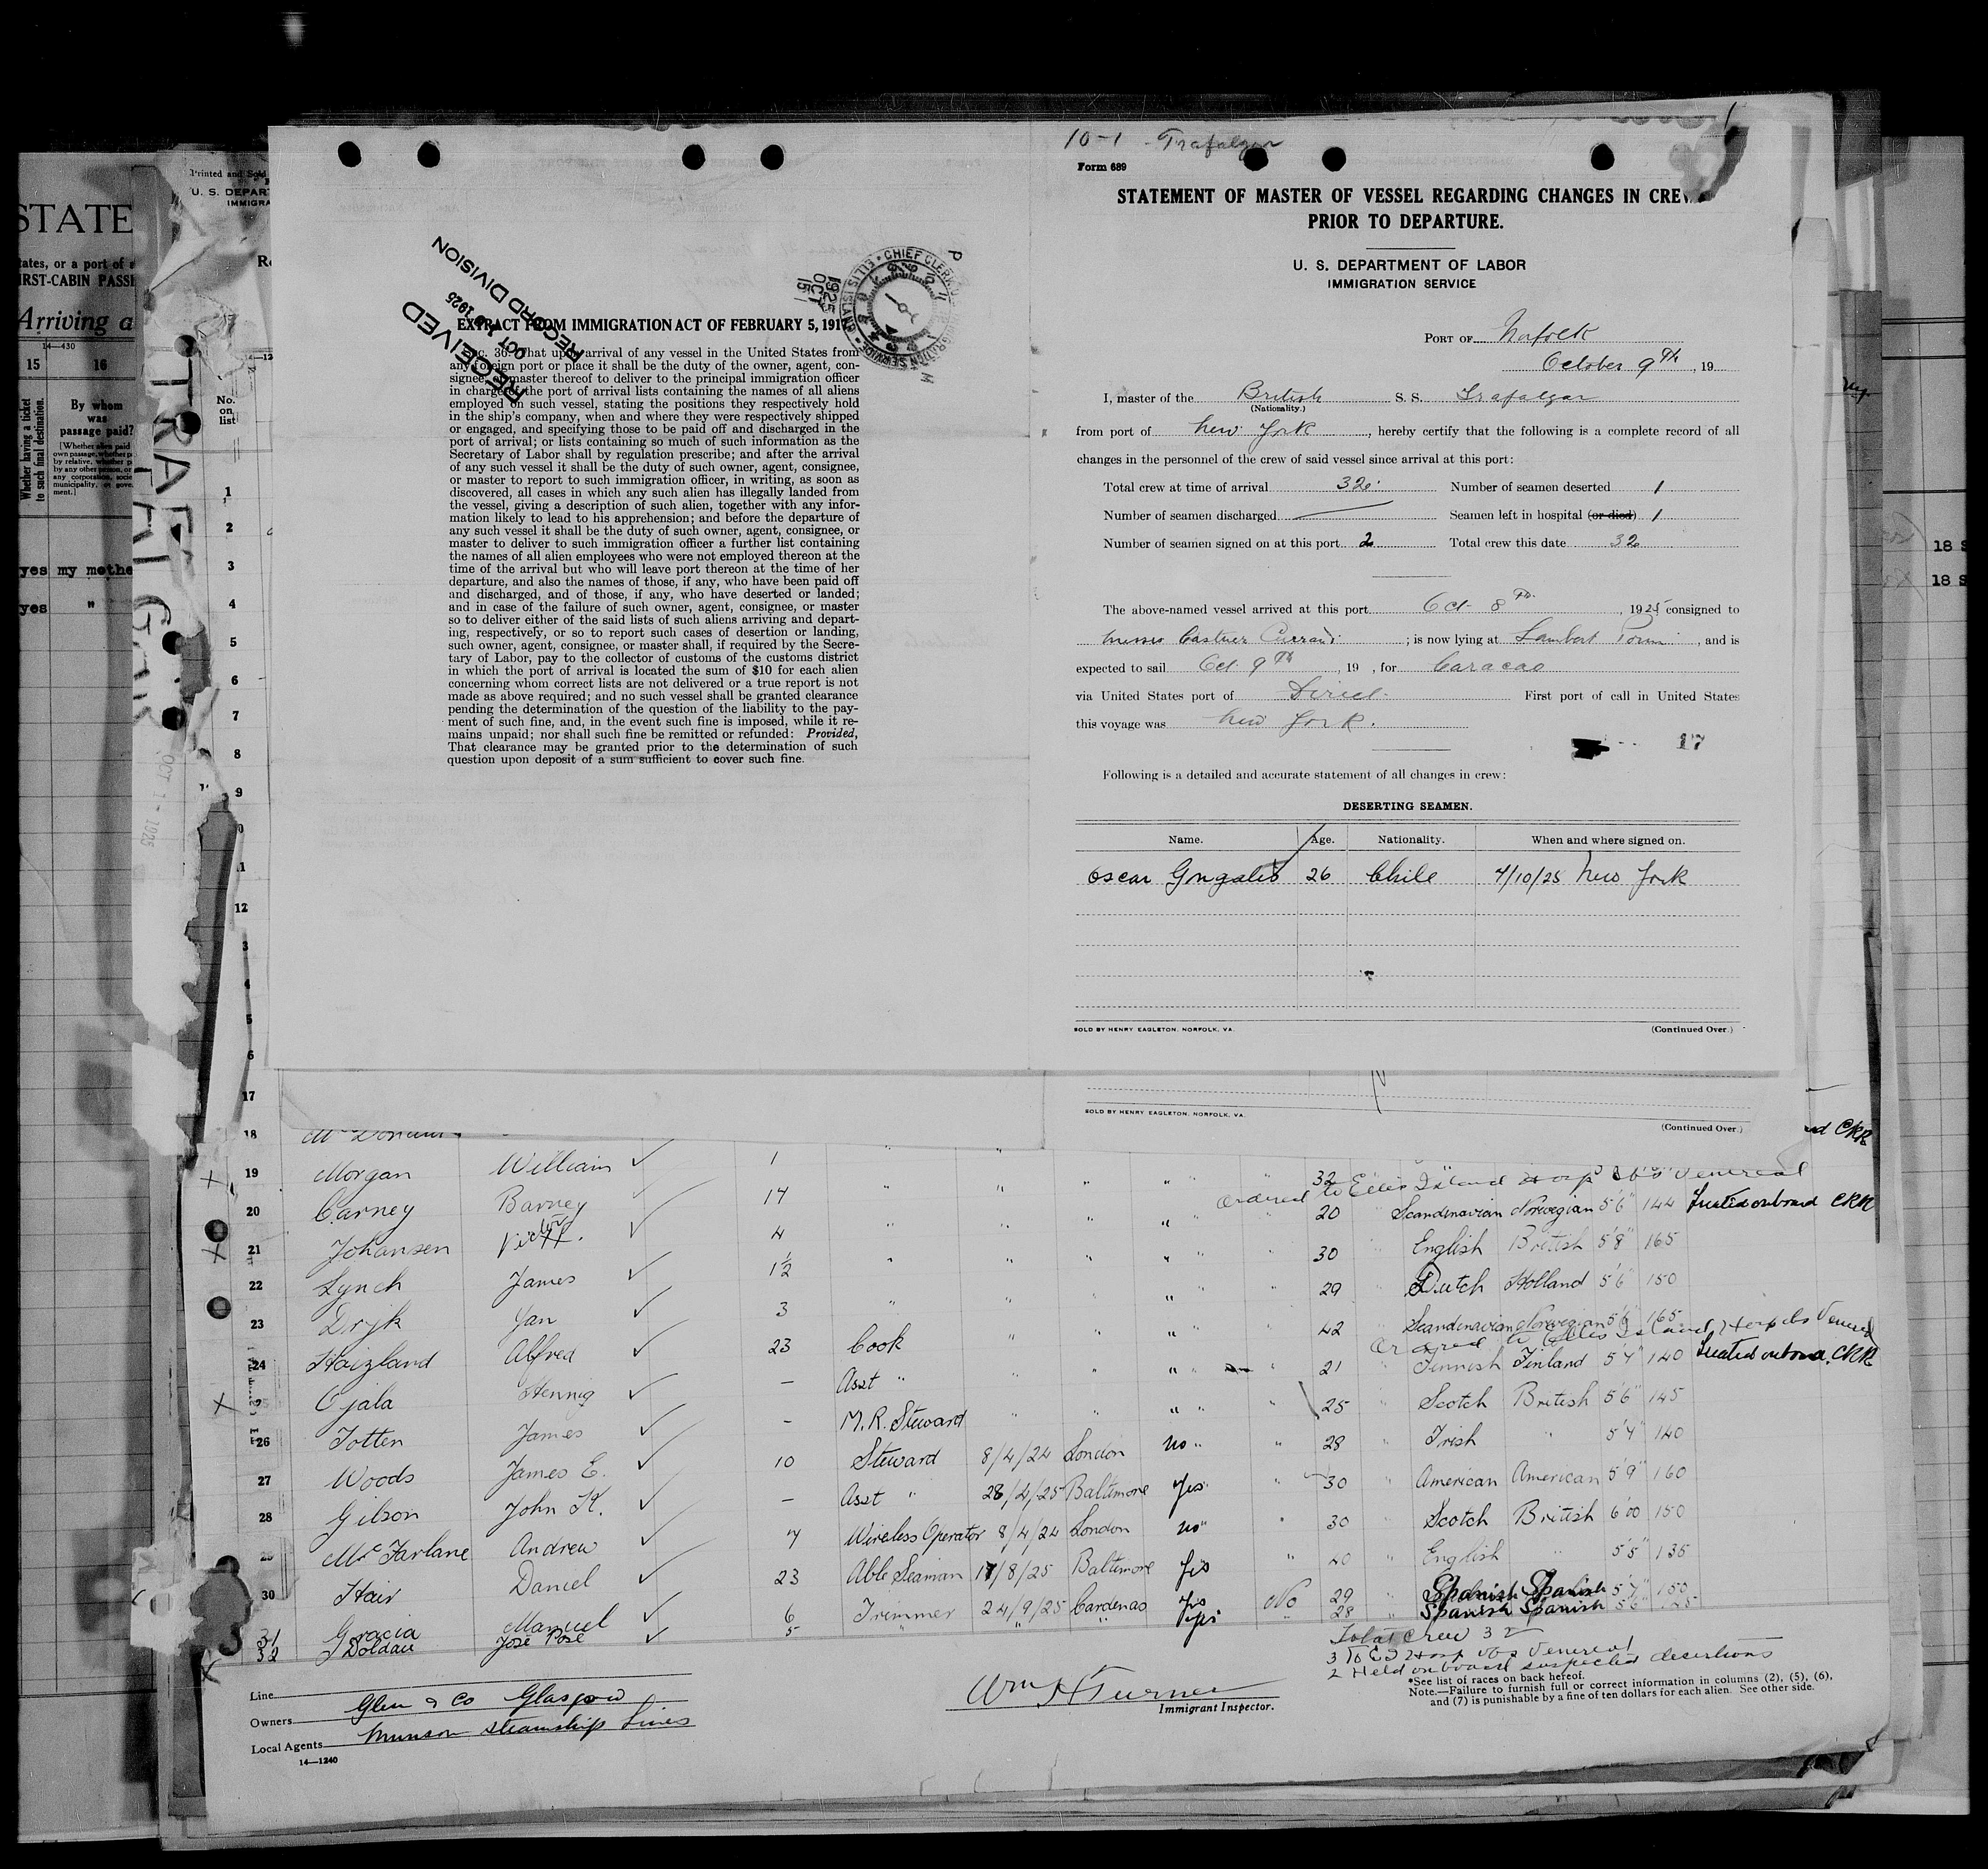 STATE
ates, or a port of
IRST-CABIN PASS
Arriving a
14—430
15 16
Whether having a ticket to such final destination.
By whom was passage paid?
yes my mothe
yes "
Printed and Sold
U. S. DEPAR
IMMIGRA
TRAFALGAR
OCT 1 - 1925
No. on list
1
2
3
4
5
6
7
8
9
12
17
RECEIVED
OCT 1925
RECORD DIVISION
1925 OCT 15
CHIEF CLERK
ELLIS ISLAND
EXTRACT FROM IMMIGRATION ACT OF FEBRUARY 5, 1917
Sec. 36. That upon arrival of any vessel in the United States from
any foreign port or place it shall be the duty of the owner, agent, con-
signee, or master thereof to deliver to the principal immigration officer
in charge of the port of arrival lists containing the names of all aliens
employed on such vessel, stating the positions they respectively hold
in the ship's company, when and where they were respectively shipped
or engaged, and specifying those to be paid off and discharged in the
port of arrival; or lists containing so much of such information as the
Secretary of Labor shall by regulation prescribe; and after the arrival
of any such vessel it shall be the duty of such owner, agent, consignee,
or master to report to such immigration officer, in writing, as soon as
discovered, all cases in which any such alien has illegally landed from
the vessel, giving a description of such alien, together with any infor-
mation likely to lead to his apprehension; and before the departure of
any such vessel it shall be the duty of such owner, agent, consignee, or
master to deliver to such immigration officer a further list containing
the names of all alien employees who were not employed thereon at the
time of the arrival but who will leave port thereon at the time of her
departure, and also the names of those, if any, who have been paid off
and discharged, and of those, if any, who have deserted or landed;
and in case of the failure of such owner, agent, consignee, or master
so to deliver either of the said lists of such aliens arriving and depart-
ing, respectively, or so to report such cases of desertion or landing,
such owner, agent, consignee, or master shall, if required by the Secre-
tary of Labor, pay to the collector of customs of the customs district
in which the port of arrival is located the sum of $10 for each alien
concerning whom correct lists are not delivered or a true report is not
made as above required; and no such vessel shall be granted clearance
pending the determination of the question of the liability to the pay-
ment of such fine, and, in the event such fine is imposed, while it re-
mains unpaid; nor shall such fine be remitted or refunded: Provided,
That clearance may be granted prior to the determination of such
question upon deposit of a sum sufficient to cover such fine.
10-1 - Trafalgar
Form 689
STATEMENT OF MASTER OF VESSEL REGARDING CHANGES IN CREW
PRIOR TO DEPARTURE.
U. S. DEPARTMENT OF LABOR
IMMIGRATION SERVICE
PORT OF Norfolk
October 9th, 19
I, master of the British S. S. Trafalgar
(Nationality.)
from port of New York, hereby certify that the following is a complete record of all
changes in the personnel of the crew of said vessel since arrival at this port:
Total crew at time of arrival 32 Number of seamen deserted 1
Number of seamen discharged Seamen left in hospital (or died) 1
Number of seamen signed on at this port 2 Total crew this date 32
The above-named vessel arrived at this port Oct 8th, 1925 consigned to
Messrs Castner Curran; is now lying at Lambert Point, and is
expected to sail Oct 9th, 19 , for Caracao
via United States port of Direct First port of call in United States
this voyage was New York.
17
Following is a detailed and accurate statement of all changes in crew:
DESERTING SEAMEN.
Name. Age. Nationality. When and where signed on.
Oscar 26 Chile 4/10/25 New York
SOLD BY HENRY EAGLETON, NORFOLK, VA. (Continued Over.)
SOLD BY HENRY EAGLETON, NORFOLK, VA.
(Continued Over.)
18 CRR
19 Morgan William 1 32
Ordered to Ellis Island Hosp obs Venereal
20 Carney Barney 14 20 Scandinavian Norwegian 5'6" 144 Treated onboard CRR
21 Johansen Victor 4 30 English British 5'8" 165
22 Lynch James 1½ 29 Dutch Holland 5'6" 150
23 Drijk Jan 3 42 Scandinavian Norwegian 5'6" 165
Ordered to Ellis Island, Hosp obs Venereal
24 Haizland Alfred 23 Cook 21 Finnish Finland 5'7" 140 Treated onboard. CRR
25 Ojala Hennig — Asst " 25 Scotch British 5'6" 145
26 Totten James — M.R. Steward 28 Irish " 5'4" 140
27 Woods James E. 10 Steward 8/4/24 London no " 30 American American 5'9" 160
28 Gilson John K. — Asst " 28/4/25 Baltimore Yes 30 Scotch British 6'00 150
29 McFarlane Andrew 7 Wireless Operator 8/4/24 London no " 40 English " 5'5" 135
30 Hair Daniel 23 Able Seaman 17/8/25 Baltimore Yes
31 Gracia Manuel 6 Trimmer 24/9/25 Cardenas Yes No 29 Spanish Spanish 5'7" 150
32 Doldau Jose Pose 5 " " Yes " 28 Spanish Spanish 5'6" 125
Total Crew 32
3 to E I Hosp obs Venereal
2 Held onboard suspected desertions
Line
Owners Glen & Co Glasgow
Local Agents Munson Steamship Lines
14—1240
Wm H Turner
Immigrant Inspector.
*See list of races on back hereof.
Note.—Failure to furnish full or correct information in columns (2), (5), (6),
and (7) is punishable by a fine of ten dollars for each alien. See other side.
18 S
18 S